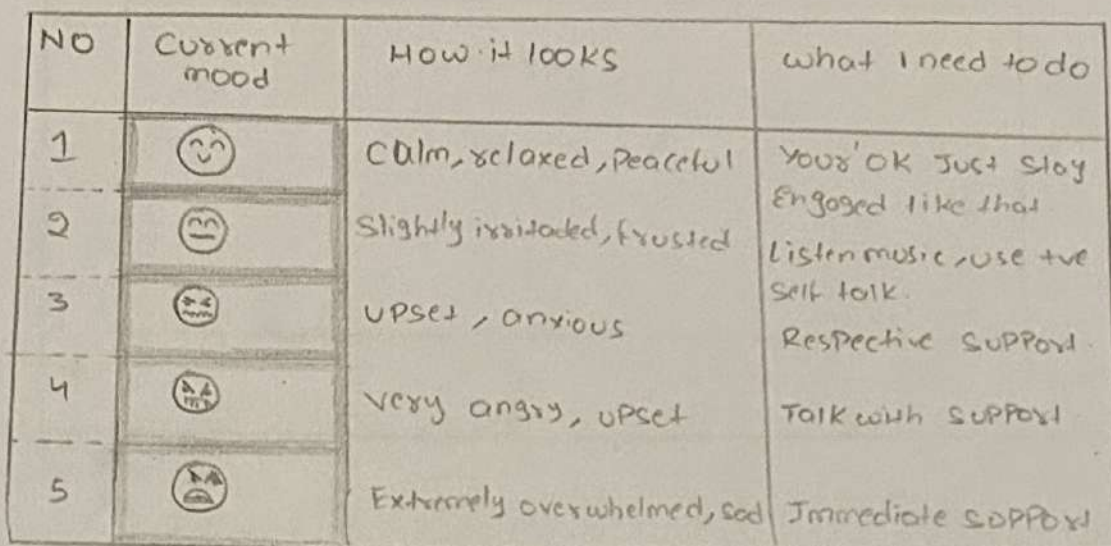 NO Current mood How it looks what I need to do
1 Calm, relaxed, Peaceful Your'OK Just Stay
Engaged like that
2 Slightly irritaded, frusted Listen music, use +ve
Self talk.
3 upset, anxious Respective Support.
4 very angry, upset Talk with support
5 Extremely overwhelmed, sad Immediate support